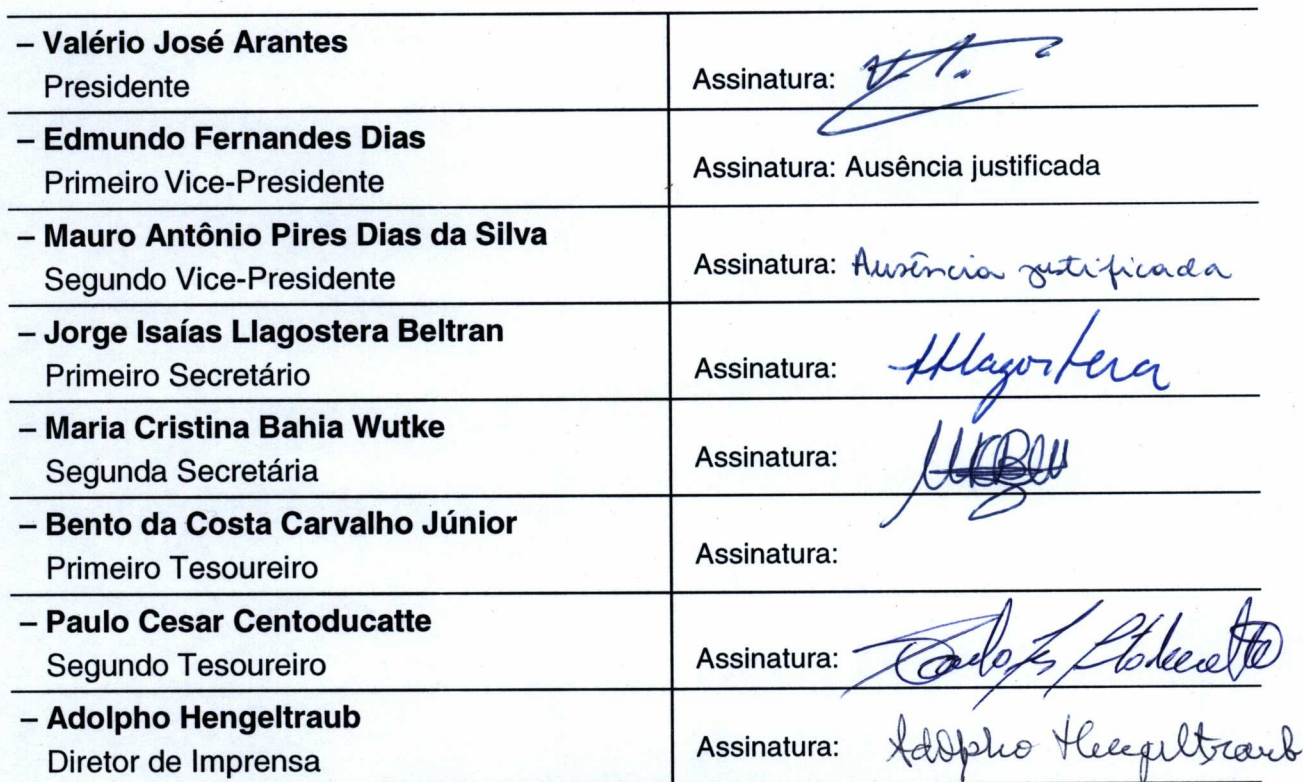 – Valério José Arantes
Presidente
Assinatura:
– Edmundo Fernandes Dias
Primeiro Vice-Presidente
Assinatura: Ausência justificada
– Mauro Antônio Pires Dias da Silva
Segundo Vice-Presidente
Assinatura: Ausência justificada
– Jorge Isaías Llagostera Beltran
Primeiro Secretário
Assinatura: Llagostera
– Maria Cristina Bahia Wutke
Segunda Secretária
Assinatura:
– Bento da Costa Carvalho Júnior
Primeiro Tesoureiro
Assinatura:
– Paulo Cesar Centoducatte
Segundo Tesoureiro
Assinatura:
– Adolpho Hengeltraub
Diretor de Imprensa
Assinatura: Adolpho Hengeltraub